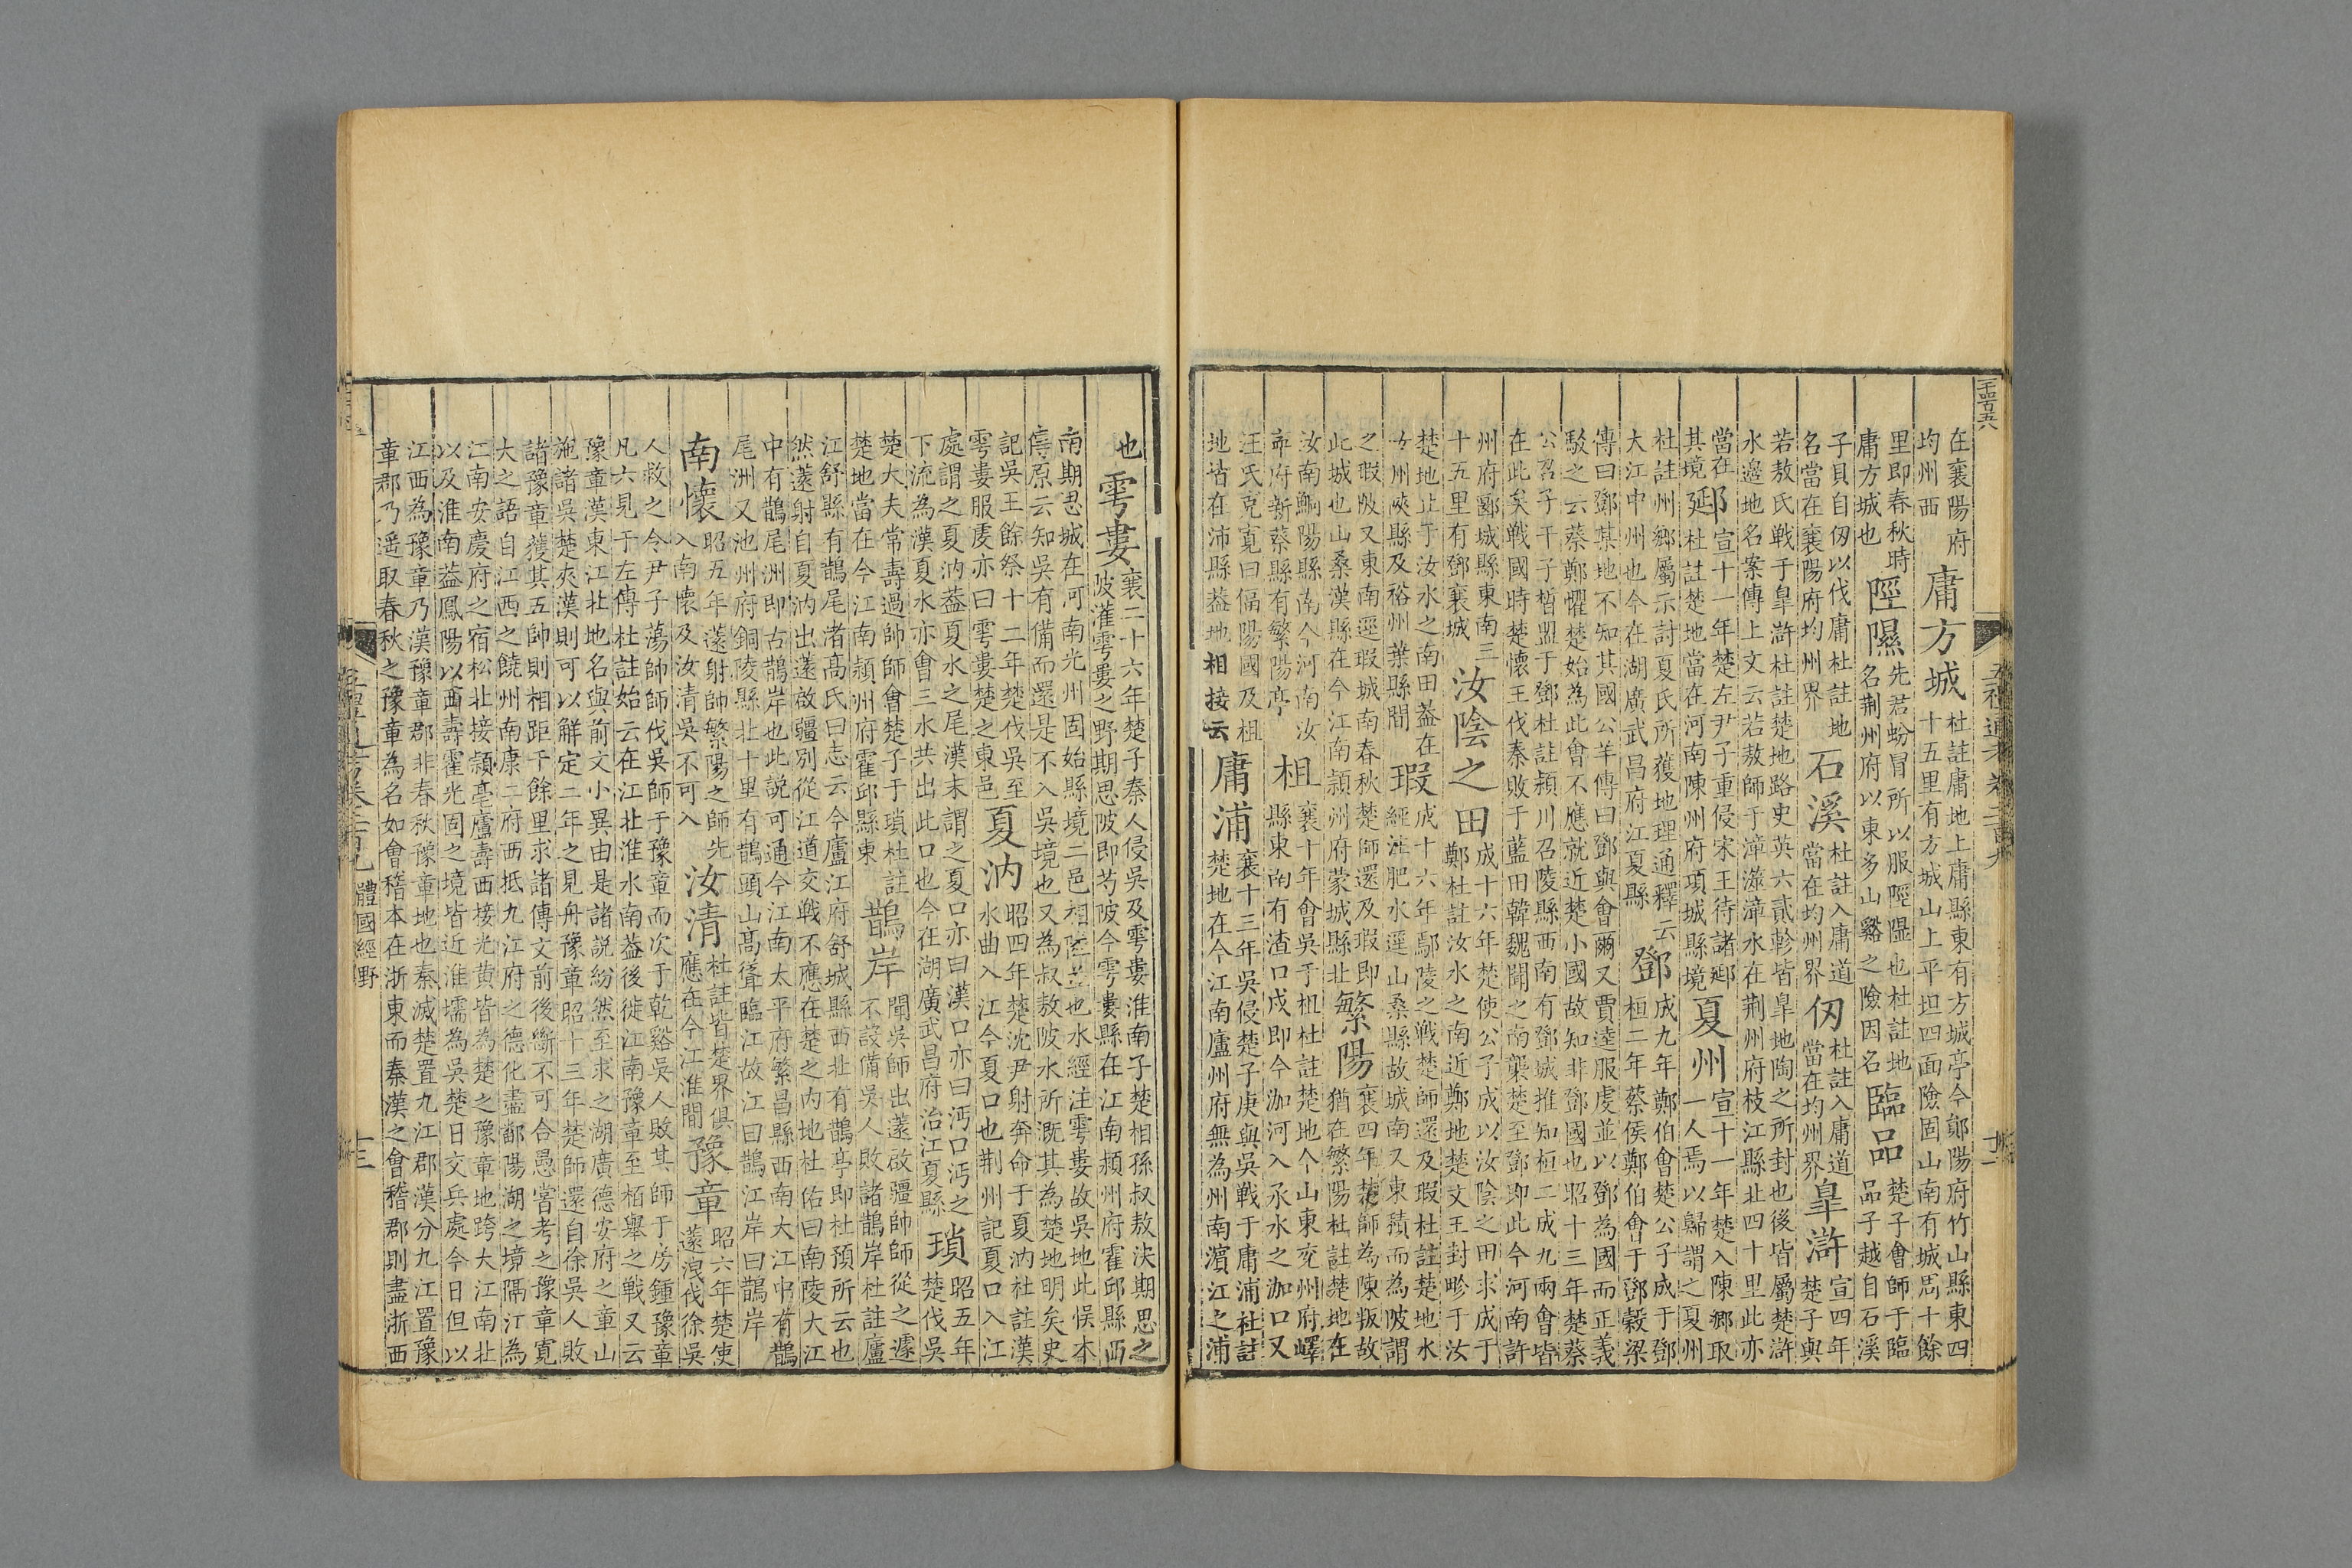 五禮通考卷二百九
在襄陽府均州西 庸方城 杜註庸地上庸縣東有方城亭今鄖陽府竹山縣東四十五里有方城山上平坦四面險固山南有城周十餘
里即春秋時庸方城也 陘隰 先君蚡冒所以服陘隰也杜註地名荆州府以東多山谿之險因名 臨品 楚子會師于臨品子越自石溪
子貝自仞以伐庸杜註地名當在襄陽府均州界 石溪 杜註入庸道當在均州界 仞 杜註入庸道當在均州界 臯滸 宣四年楚子與
若敖氏戰于臯滸杜註楚地路史英六貳軫皆臯地陶之所封也後皆屬楚滸水邉地名案傳上文云若敖師于漳澨漳水在荆州府枝江縣北四十里此亦
當在其境 郔 宣十一年楚左尹子重侵宋王待諸郔杜註楚地當在河南陳州府項城縣境 夏州 宣十一年楚入陳鄉取一人焉以歸謂之夏州
杜註州鄉屬示討夏氏所獲地理通釋云大江中州也今在湖廣武昌府江夏縣 鄧 成九年鄭伯會楚公子成于鄧桓二年蔡侯鄭伯會于鄧榖梁
傳曰鄧某地不知其國公羊傳曰鄧與會爾又賈逵服虔並以鄧為國而正義駁之云蔡鄭懼楚始為此會不應就近楚小國故知非鄧國也昭十三年楚蔡
公召子干子晳盟于鄧杜註頴川召陵縣西南有鄧城推知桓二成九兩會皆在此矣戰國時楚懷王伐秦敗于藍田韓魏聞之南襲楚至鄧即此今河南許
州府郾城縣東南三十五里有鄧襄城 汝隂之田 成十六年楚使公子成以汝隂之田求成于鄭杜註汝水之南近鄭地楚文王封畛于汝
楚地止于汝水之南田葢在汝州郟縣及裕州葉縣間 瑕 成十六年鄢陵之戰楚師還及瑕杜註楚地水經注肥水逕山桑縣故城南又東積而為陂謂
之瑕陂又東南逕瑕城南春秋楚師還及瑕即此城也山桑漢縣在今江南頴州府蒙城縣北 繁陽 襄四年楚師為陳叛故猶在繁陽杜註楚地在
汝南鮦陽縣南今河南汝寧府新蔡縣有繁陽亭 柤 襄十年會吳于柤杜註楚地今山東兖州府嶧縣東南有渣口戍即今泇河入氶水之泇口又
汪氏克寛曰偪陽國及柤地皆在沛縣葢地相接云 庸浦 襄十三年吳侵楚子庚與吳戰于庸浦杜註楚地在今江南廬州府無為州南濵江之浦
也 雩婁 襄二十六年楚子秦人侵吳及雩婁淮南子楚相孫叔敖決期思之陂灌雩婁之野期思陂即芍陂今雩婁縣在江南頴州府霍邱縣西
南期思城在河南光州固始縣境二邑相也水經注雩婁故吳地此悮本傳原云知吳有備而還是不入吳境也又為叔敖陂水所溉其為楚地明矣史
記吳王餘祭十二年楚伐吳至雩婁服虔亦曰雩婁楚之東邑 夏汭 昭四年楚沈尹射奔命于夏汭杜註漢水曲入江今夏口也荆州記夏口入江
處謂之夏汭葢夏水之尾漢末謂之夏口亦曰漢口亦曰沔口沔之下流為漢夏水亦會三水共出此口也今在湖廣武昌府治江夏縣 瑣 昭五年楚伐吳
楚大夫常壽過帥師會楚子于瑣杜註楚地當在今江南頴州府霍邱縣東 鵲岸 聞吳師出薳啟疆帥師從之遽不設備吳人敗諸鵲岸杜註廬
江舒縣有鵲尾渚髙氏曰志云今廬江府舒城縣西北有鵲亭即杜預所云也然薳射自夏汭出薳啟疆别從江道交戰不應在楚之内地杜佑曰南陵大江
中有鵲尾洲即古鵲岸也此説可通今江南太平府繁昌縣西南大江中有鵲尾洲又池州府銅陵縣北十里有鵲頭山髙聳臨江故江曰鵲江岸曰鵲岸
南懷 昭五年薳射帥繁陽之師先入南懷及汝清吳不可入 汝清 杜註皆楚界俱應在今江淮間 豫章 昭六年楚使薳洩伐徐吳
人救之令尹子蕩帥師伐吳師于豫章而次于乾谿吳人敗其師于房鍾豫章凡六見于左傳杜註始云在江北淮水南葢後徙江南豫章至栢舉之戰又云
豫章漢東江北地名與前文小異由是諸説紛然至求之湖廣德安府之章山施諸吳楚夾漢則可以解定二年之見舟豫章昭十三年楚師還自徐吳人敗
諸豫章獲其五帥則相距千餘里求諸傳文前後斷不可合愚嘗考之豫章寛大之語自江西之饒州南康二府西抵九江府之德化盡鄱陽湖之境隔江為
江南安慶府之宿松北接頴亳廬壽西接光黄皆為楚之豫章地跨大江南北以及淮南葢鳳陽以西壽霍光固之境皆近淮壖為吳楚日交兵處今日但以
江西為豫章乃漢豫章郡非春秋豫章地也秦滅楚置九江郡漢分九江置豫章郡乃遥取春秋之豫章為名如會稽本在浙東而秦漢之會稽郡則盡浙西
體國經野
十三